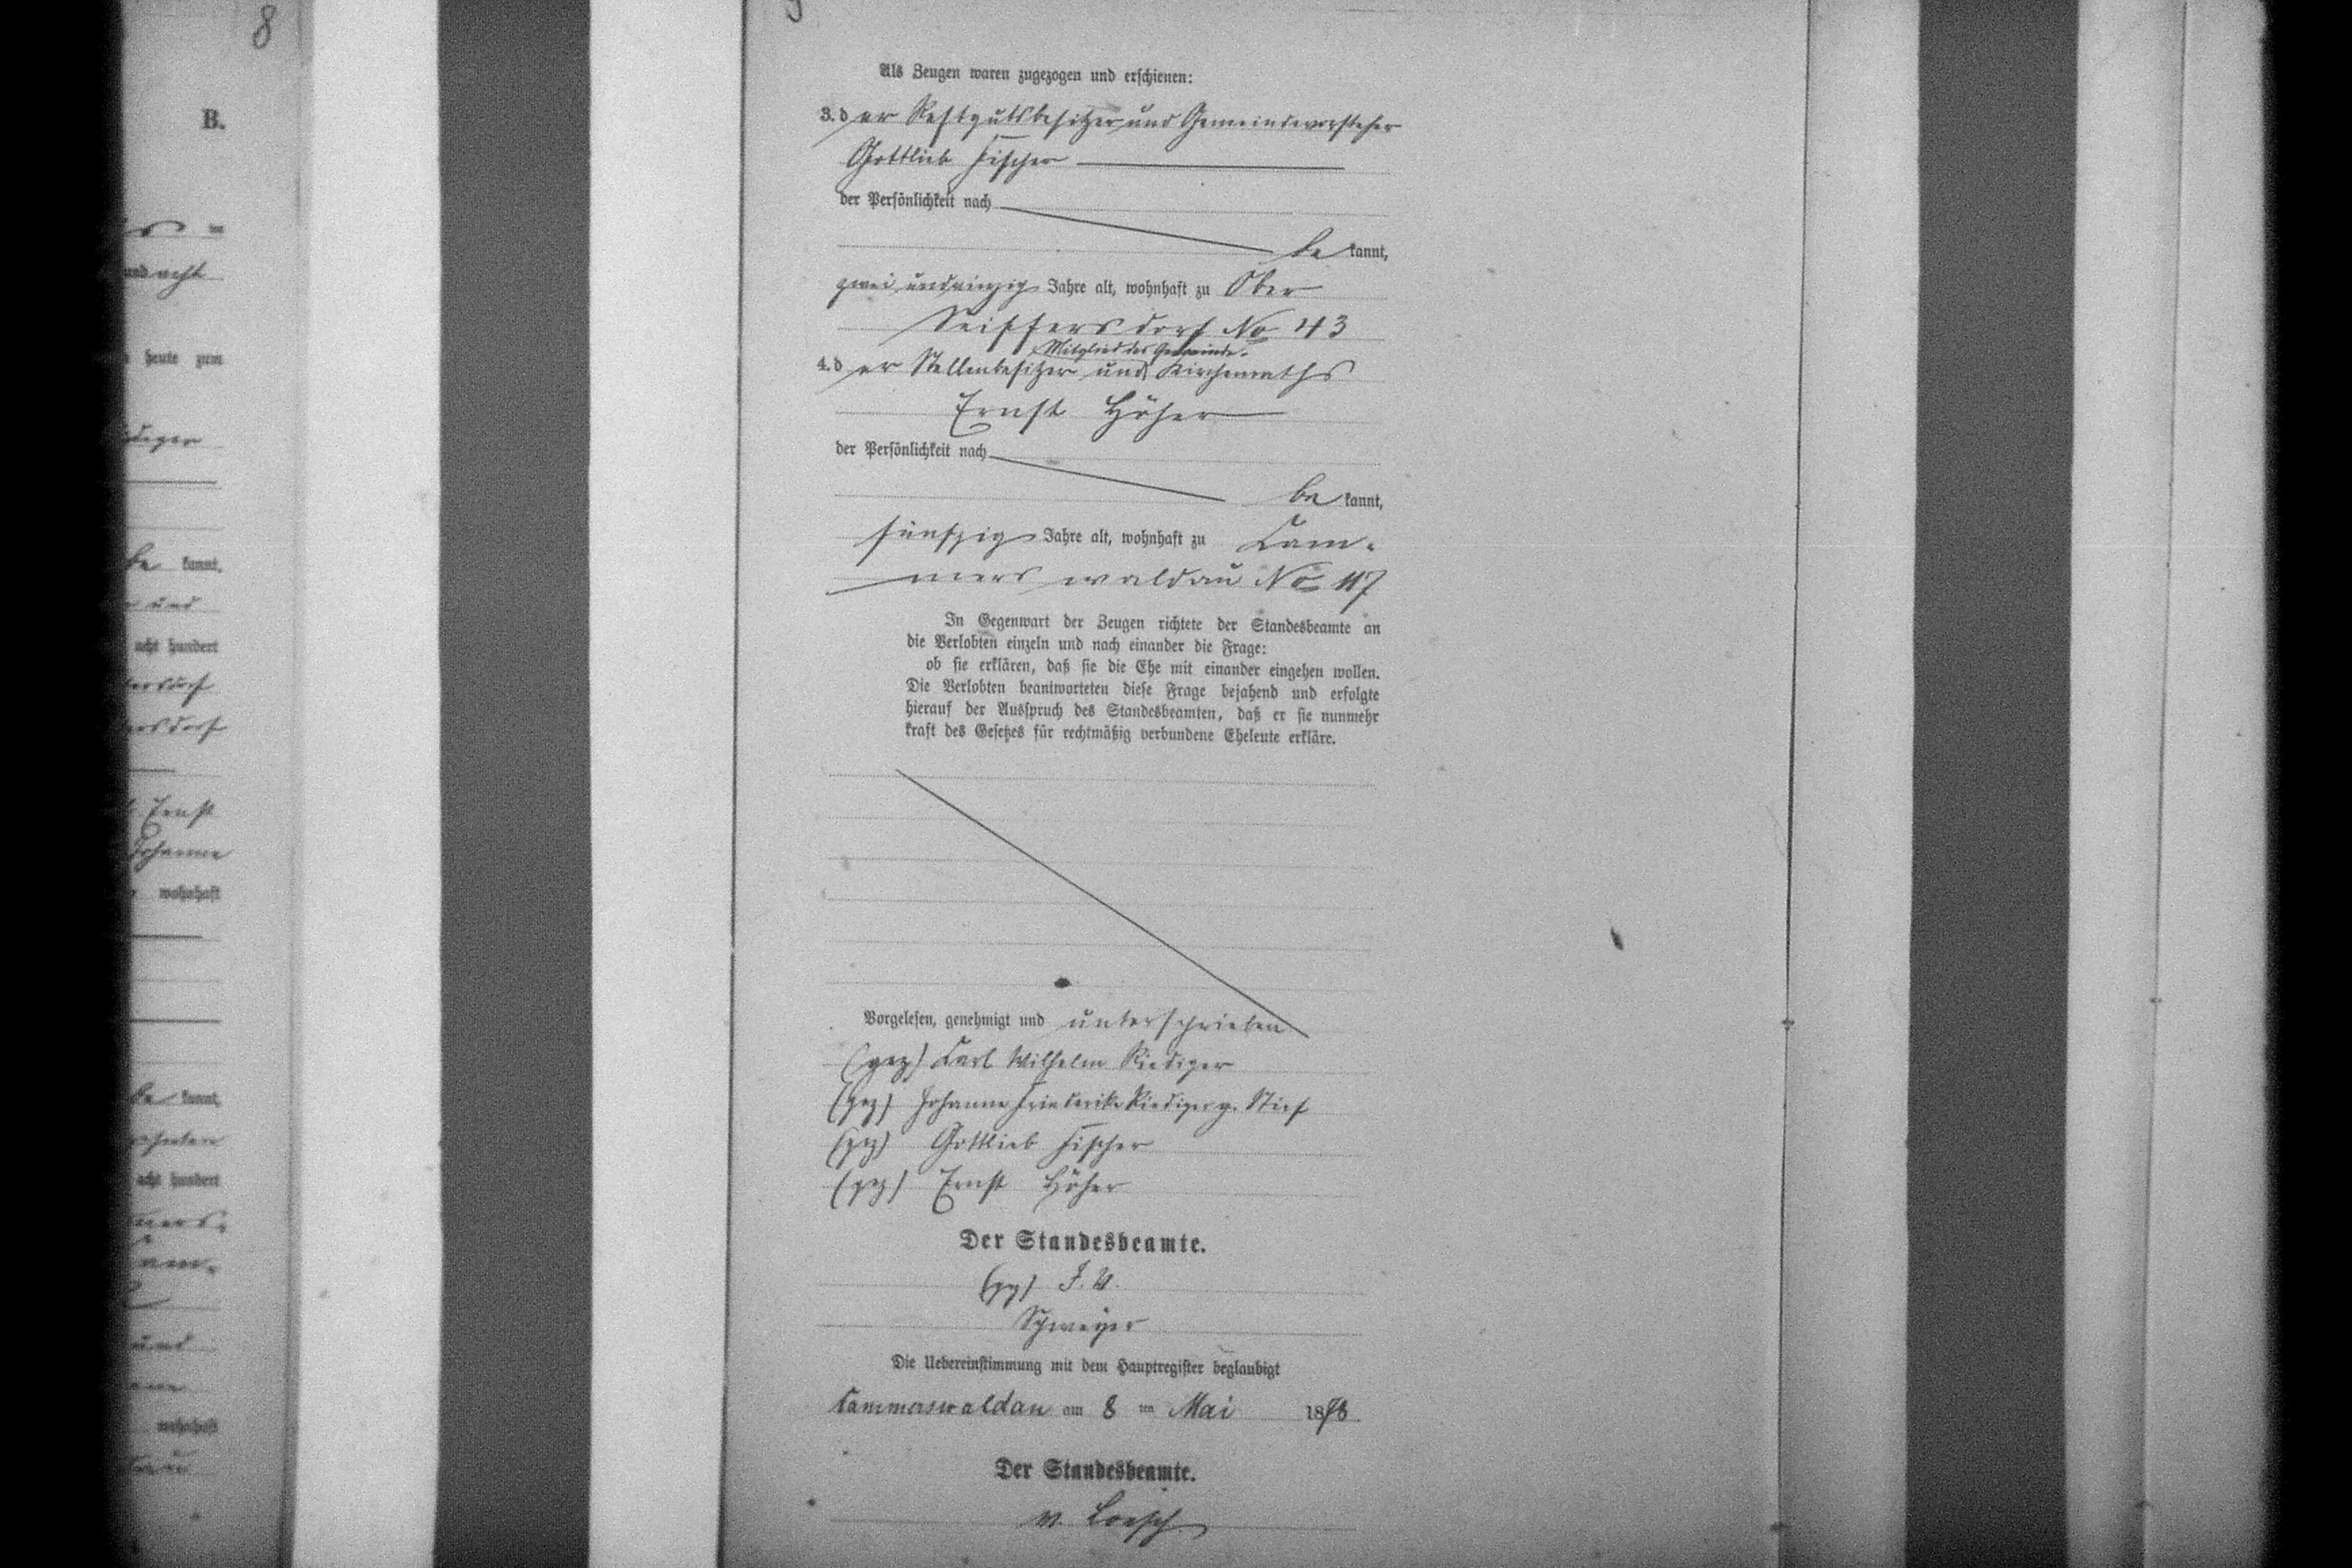 8
B.
und acht
heute zum
be kannt,
und
acht hundert
Ernst
Johanne
wohnhaft
be kannt,
acht hundert
und
wohnhaft
Als Zeugen waren zugezogen und erschienen:
3. d er Restgutsbesitzer und Gemeindevorsteher
Gottlieb Fischer
der Persönlichkeit nach
be kannt,
zwei und vierzig Jahre alt, wohnhaft zu Ober
Seiffersdorf No 43
Mitglied des Gemeinde-
4. d er Stellenbesitzer und Kirchenraths
Ernst Höher
der Persönlichkeit nach
be kannt,
fünfzig Jahre alt, wohnhaft zu Cam-
merswaldau No 117
In Gegenwart der Zeugen richtete der Standesbeamte an
die Verlobten einzeln und nach einander die Frage:
ob sie erklären, daß sie die Ehe mit einander eingehen wollen.
Die Verlobten beantworteten diese Frage bejahend und erfolgte
hierauf der Ausspruch des Standesbeamten, daß er sie nunmehr
kraft des Gesetzes für rechtmäßig verbundene Eheleute erkläre.
Vorgelesen, genehmigt und unterschrieben
(gez) Carl Wilhelm Riediger
(gez) Johanne Friederike Riediger g. Stief
(gez) Gottlieb Fischer
(gez) Ernst Höher
Der Standesbeamte.
(gez) I. V.
Schweizer
Die Uebereinstimmung mit dem Hauptregister beglaubigt
Cammerswaldau am 8 ten Mai 1878
Der Standesbeamte.
v. Loesch